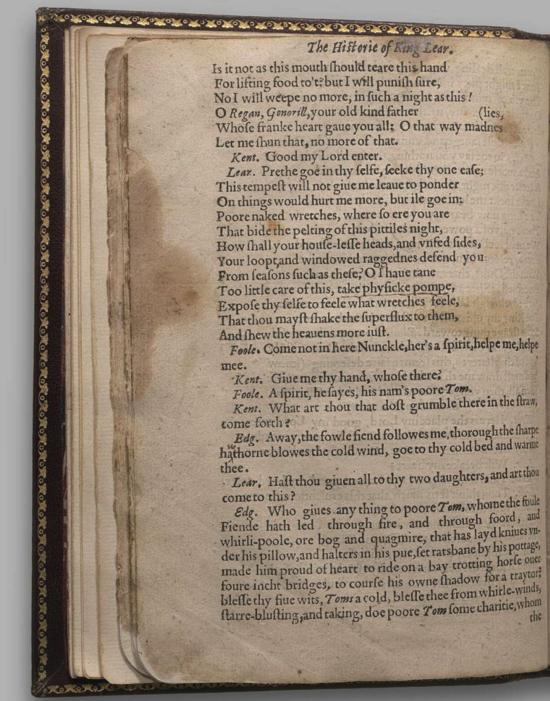 The Historie of King Lear.
Is it not as this mouth ſhould teare this hand
For lifting food to't? but I will puniſh ſure,
No I will weepe no more, in ſuch a night as this!
O Regan, Gonorill, your old kind father (lies,
Whoſe franke heart gaue you all; O that way madnes
Let me ſhun that, no more of that.
Kent. Good my Lord enter.
Lear. Prethe goe in thy ſelfe, ſeeke thy one eaſe;
This tempeſt will not giue me leaue to ponder
On things would hurt me more, but ile goe in;
Poore naked wretches, where ſo ere you are
That bide the pelting of this pittiles night,
How ſhall your houſe-leſſe heads, and vnfed ſides,
Your loopt, and windowed raggednes defend you
From ſeaſons ſuch as theſe; O I haue tane
Too little care of this, take phyſicke pompe,
Expoſe thy ſelfe to feele what wretches feele,
That thou mayſt ſhake the ſuperflux to them,
And ſhew the heauens more iuſt.
Foole. Come not in here Nunckle, her's a ſpirit, helpe me, helpe
mee.
Kent. Giue me thy hand, whoſe there?
Foole. A ſpirit, he ſayes, his nam's poore Tom.
Kent. What art thou that doſt grumble there in the ſtraw,
come forth?
Edg. Away, the fowle fiend followes me, thorough the ſharpe
hathorne blowes the cold wind, goe to thy cold bed and warme
thee.
Lear. Haſt thou giuen all to thy two daughters, and art thou
come to this?
Edg. Who giues any thing to poore Tom, whome the foule
Fiende hath led through fire, and through foord, and
whirli-poole, ore bog and quagmire, that has layd kniues vn-
der his pillow, and halters in his pue, ſet ratsbane by his pottage,
made him proud of heart to ride on a bay trotting horſe ouer
foure incht bridges, to courſe his owne ſhadow for a traytor?
bleſſe thy fiue wits, Toms a cold, bleſſe thee from whirle-winds,
ſtarre-bluſting, and taking, doe poore Tom ſome charitie, whom
the